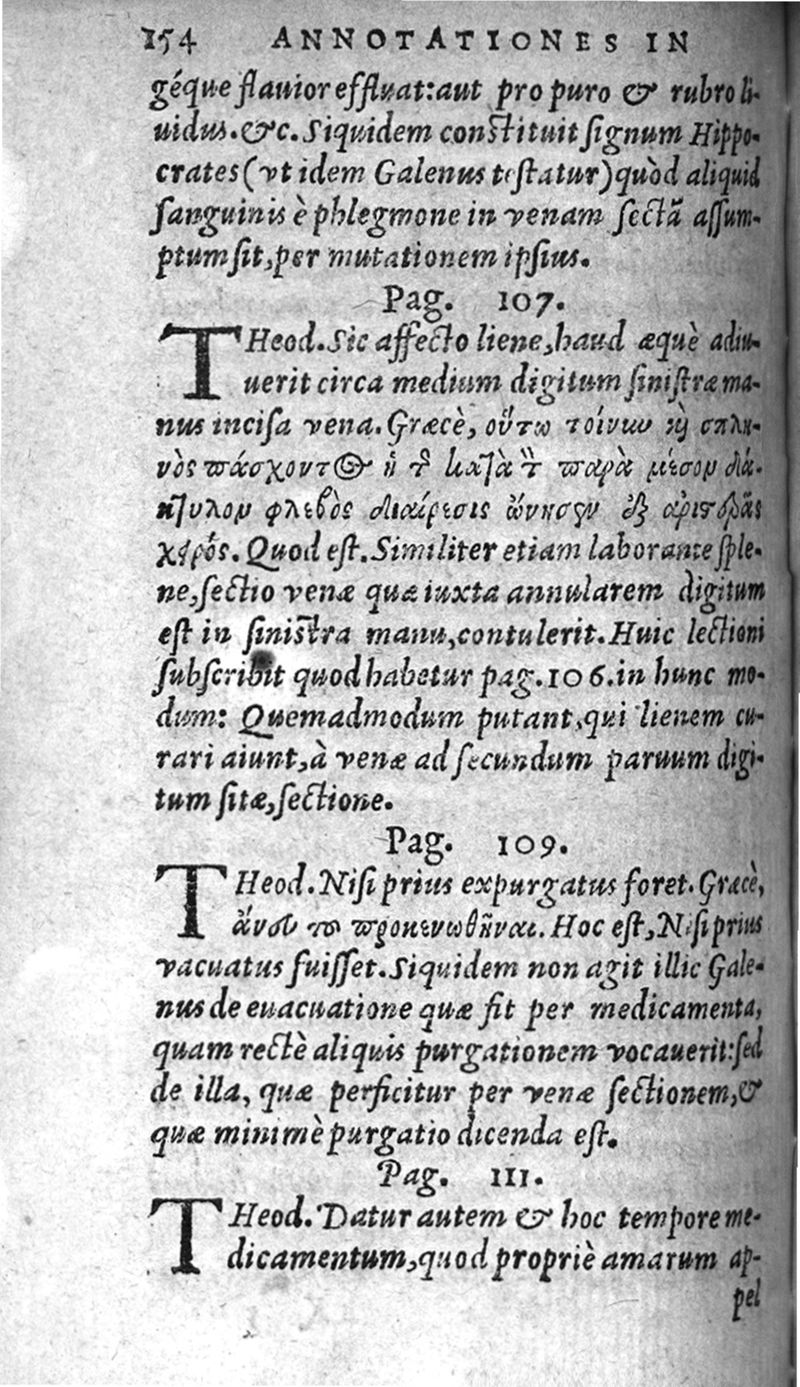 154 ANNOTATIONES IN
géque flauior effluat:aut pro puro & rubro li-
uidus.&c. Siquidem constituit signum Hippo-
crates (vt idem Galenus testatur) quòd aliquid
sanguinis è phlegmone in venam sectã assum-
ptum sit, per mutationem ipsius.
Pag. 107.
THeod. Sic affecto liene, haud æquè adiu-
uerit circa medium digitum sinistræ ma-
nus incisa vena. Græcè, οὕτω τοίνυν καὶ σπλη-
νὸς πάσχοντος ἡ τ͂ κατὰ τ̀ παρὰ μέσον δά-
κτυλον φλεβὸς διαίρεσις ὤνησεν ἐξ ἀριστερᾶς
χειρός. Quod est. Similiter etiam laborante sple-
ne, sectio venæ quæ iuxta annularem digitum
est in sinistra manu, contulerit. Huic lectioni
subscribit quod habetur pag. 106. in hunc mo-
dum: Quemadmodum putant, qui lienem cu-
rari aiunt, à venæ ad secundum paruum digi-
tum sitæ, sectione.
Pag. 109.
THeod. Nisi prius expurgatus foret. Græcè,
ἄνευ τοῦ προκενωθῆναι. Hoc est, Nisi prius
vacuatus fuisset. Siquidem non agit illic Gale-
nus de euacuatione quæ fit per medicamenta,
quam rectè aliquis purgationem vocauerit: sed
de illa, quæ perficitur per venæ sectionem, &
quæ minimè purgatio dicenda est.
Pag. 111.
THeod. Datur autem & hoc tempore me-
dicamentum, quod propriè amarum ap-
pel